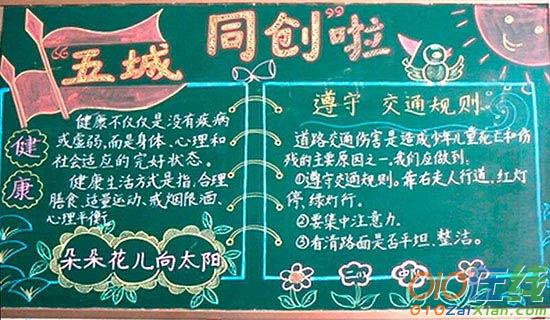 “五城同创”啦
健康
健康不仅仅是没有疾病
或虚弱,而是身体、心理和
社会适应的完好状态。
健康生活方式是指,合理
膳食、适量运动、戒烟限酒、
心理平衡。
朵朵花儿向太阳
遵守 交通规则
道路交通伤害是造成少年儿童死亡和伤
残的主要原因之一,我们应做到:
①遵守交通规则。靠右走人行道,红灯
停,绿灯行。
②要集中注意力.
③看清路面是否平坦、整洁。
二
中
010在线
010zaixian.com